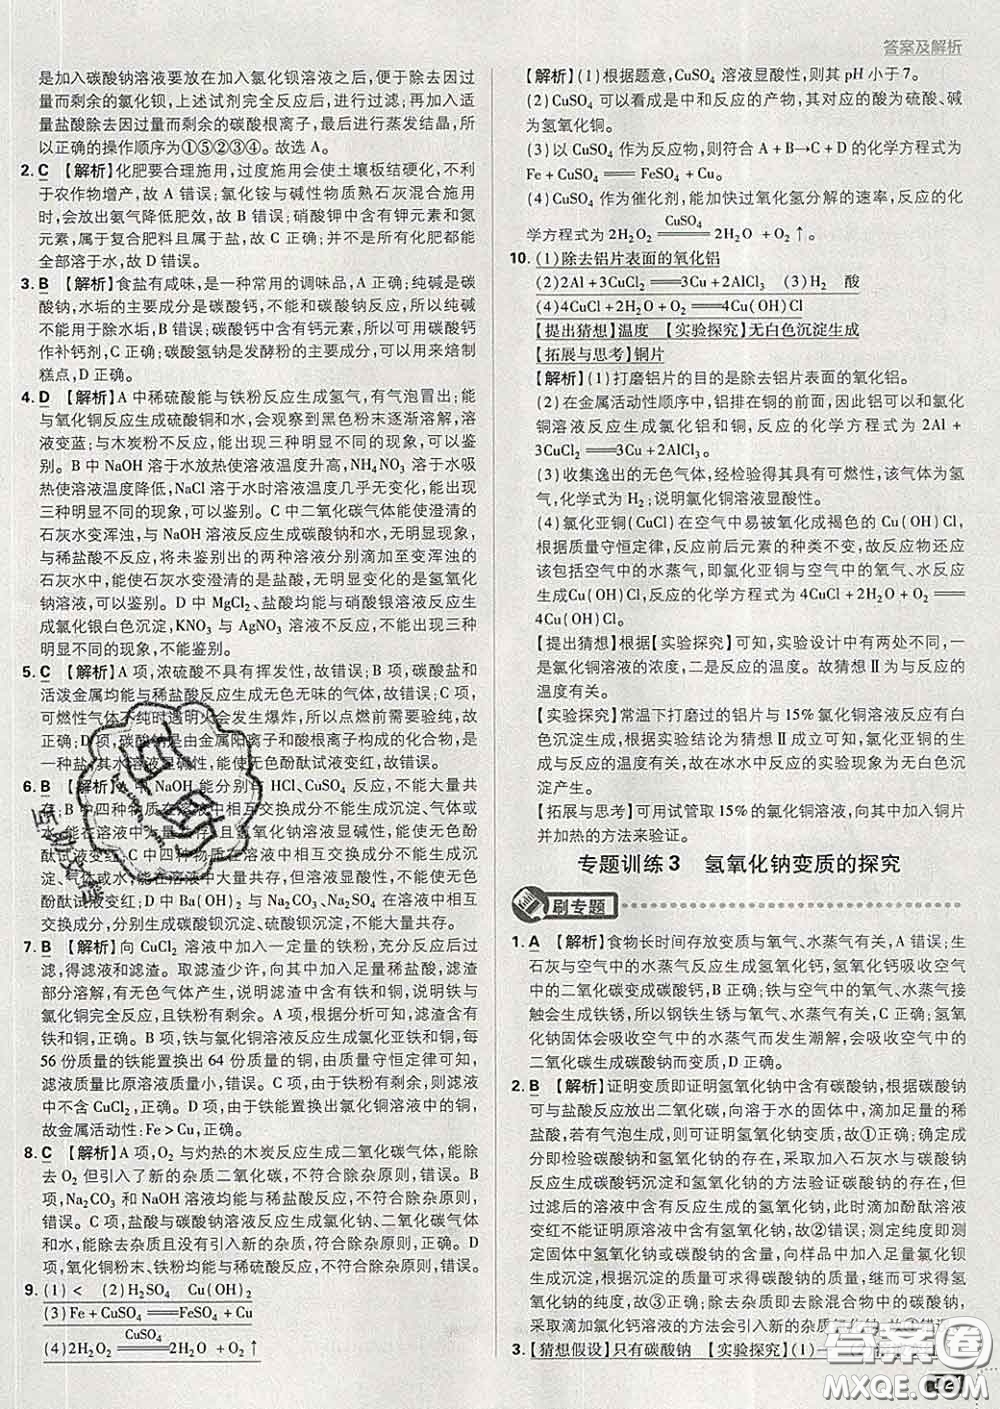 答案及解析
是加入碳酸钠溶液要放在加入氯化钡溶液之后,便于除去因过
量而剩余的氯化钡,上述试剂完全反应后,进行过滤;再加入适
量盐酸除去因过量而剩余的碳酸根离子,最后进行蒸发结晶,所
以正确的操作顺序为①⑤②③④。故选A。
2. C 【解析】化肥要合理施用,过度施用会使土壤板结硬化,不利
于农作物增产,故 A 错误;氯化铵与碱性物质熟石灰混合施用
时,会放出氨气降低肥效,故 B 错误;硝酸钾中含有钾元素和氮
元素,属于复合肥料且属于盐,故 C 正确;并不是所有化肥都能
全部溶于水,故 D 错误。
3. B 【解析】食盐有咸味,是一种常用的调味品,A 正确;纯碱是碳
酸钠,水垢的主要成分是碳酸钙,不能和碳酸钠反应,所以纯碱
不能用于除水垢,B 错误;碳酸钙中含有钙元素,所以碳酸钙可
作补钙剂,C 正确;碳酸氢钠是发酵粉的主要成分,可以用来焙制
糕点,D 正确。
4. D 【解析】A 中稀硫酸能与铁粉反应生成氢气,有气泡冒出;能
与氧化铜反应生成硫酸铜和水,会观察到黑色粉末逐渐溶解,溶
液变蓝;与木炭粉不反应,能出现三种明显不同的现象,可以鉴
别。B 中 NaOH 溶于水放热使溶液温度升高,NH4NO3 溶于水吸
热使温度降低,NaCl 溶于水时溶液温度几乎无变化,能出现三种
明显不同的现象,可以鉴别。C 中二氧化碳气体能使澄清的
石灰水变浑浊,与 NaOH 溶液反应生成碳酸钠和水,无明显现象,
与稀盐酸不反应,将未鉴别出的两种溶液分别滴加至变浑浊的
石灰水中,能使溶液变澄清的是盐酸,无明显变化的是氢氧化
钠溶液,可以鉴别。D 中 MgCl2、盐酸均能与硝酸银溶液反应生
成氯化银白色沉淀,KNO3 与 AgNO3 溶液不反应,不能出现三种
明显不同的现象,不能鉴别。
5. C 【解析】A 项,浓硫酸不具有挥发性,故错误;B 项,碳酸盐和
活泼金属均能与稀盐酸反应生成无色无味的气体,故错误;C 项,
可燃性气体不纯时遇明火会发生爆炸,所以点燃前需要验纯,故
正确;D 项,碳酸钠是由金属阳离子和酸根离子构成的化合物,是
一种盐,其水溶液显碱性,能使无色酚酞试液变红,故错误。
6. B 【解析】A 中 NaOH 能分别与 HCl、CuSO4 反应,不能大量共
存;B 中四种物质在溶液中相互交换成分不能生成沉淀、气体或
水,能在溶液中大量共存,且氢氧化钠溶液显碱性,能使无色酚
酞试液变红;C 中四种物质在溶液中相互交换成分不能生成
沉淀、气体或水,能在溶液中大量共存,但溶液不能使无色酚
酞试液变红;D 中 Ba(OH)2 与 Na2CO3、Na2SO4 相互交换
成分,分别生成碳酸钡沉淀、硫酸钡沉淀,不能大量共存。
7. B 【解析】向 CuCl2 溶液中加入一定量的铁粉,充分反应后过
滤,得滤液和滤渣。取滤渣少许,向其中加入足量稀盐酸,滤渣
部分溶解,有无色气体产生,说明滤渣中含有铁和铜,则铁与
氯化铜完全反应,且铁粉有剩余。A 项,根据分析可知,滤渣中
含有铁和铜,错误;B 项,铁与氯化铜溶液反应生成氯化亚铁和铜,每
56 份质量的铁能置换出 64 份质量的铜,由质量守恒定律可知,
滤液质量比原溶液质量小,正确;C 项,铁粉有剩余,则滤液
中不含 CuCl2,错误;D 项,由于铁能置换出氯化铜溶液中的铜,
故金属活动性:Fe>Cu,错误。
8. C 【解析】A 项,O2 与灼热的木炭反应生成二氧化碳气体,能除
去 O2 但引入了新的杂质二氧化碳,不符合除杂原则,错误;B
项,Na2CO3 和 NaOH 溶液均能与盐酸反应,不符合除杂原则,
错误;C 项,盐酸与碳酸钠溶液反应生成氯化钠、二氧化碳气体
和水,能除去杂质且没有引入新的杂质,符合除杂原则,正确;D
项,氧化铜粉末、铁粉均能与稀硫酸反应,不符合除杂原则,错误。
9. (1)< (2)H2SO4 Cu(OH)2
(3)Fe+CuSO4══FeSO4+Cu
(4)2H2O2 CuSO4══ 2H2O+O2↑
【解析】(1)根据题意,CuSO4 溶液显酸性,则其 pH 小于 7。
(2)CuSO4 可以看成是中和反应的产物,其对应的酸为硫酸、碱
为氢氧化铜。
(3)以 CuSO4 作为反应物,则符合 A+B→C+D 的化学方程式为
Fe+CuSO4══FeSO4+Cu。
(4)CuSO4 作为催化剂,能加快过氧化氢分解的速率,反应的化
学方程式为 2H2O2 CuSO4══ 2H2O+O2↑。
10. (1)除去铝片表面的氧化铝
(2)2Al+3CuCl2══3Cu+2AlCl3 (3)H2 酸
(4)4CuCl+2H2O+O2══4Cu(OH)Cl
【提出猜想】温度 【实验探究】无白色沉淀生成
【拓展与思考】铜片
【解析】(1)打磨铝片的目的是除去铝片表面的氧化铝。
(2)在金属活动性顺序中,铝排在铜的前面,因此铝可以和氯化
铜溶液反应生成氯化铝和铜,反应的化学方程式为 2Al+
3CuCl2══3Cu+2AlCl3。
(3)收集逸出的无色气体,经检验得其具有可燃性,该气体为氢
气,化学式为 H2;说明氯化铜溶液显酸性。
(4)氯化亚铜(CuCl)在空气中易被氧化成褐色的 Cu(OH)Cl,
根据质量守恒定律,反应前后元素的种类不变,故反应物还应
该包括空气中的水蒸气,即氯化亚铜与空气中的氧气、水蒸气反
应生成Cu(OH)Cl,反应的化学方程式为 4CuCl+2H2O+O2══
4Cu(OH)Cl。
【提出猜想】根据【实验探究】可知,实验设计中有两处不同,一
是氯化铜溶液的浓度,二是反应的温度。故猜想Ⅱ为与反应的
温度有关。
【实验探究】常温下打磨过的铝片与 15%氯化铜溶液反应有白
色沉淀生成。根据实验结论为猜想Ⅱ成立可知,氯化亚铜的生
成与反应的温度有关,故在冰水中反应的实验现象为无白色沉
淀产生。
【拓展与思考】可用试管取 15%的氯化铜溶液,向其中加入铜片
并加热的方法来验证。
专题训练3 氢氧化钠变质的探究
刷专题
1. A 【解析】食物长时间存放变质与氧气、水蒸气有关,A 错误;生
石灰与空气中的水蒸气反应生成氢氧化钙,氢氧化钙吸收空气
中的二氧化碳变成碳酸钙,B 正确;铁与空气中的氧气、水蒸气
接触会生成铁锈,所以钢铁生锈与氧气、水蒸气有关;氢氧化
钠固体会吸收空气中的水蒸气而发生潮解,会吸收空气中的
二氧化碳生成碳酸钠而变质,D 正确。
2. B 【解析】证明变质即证明氢氧化钠中含有碳酸钠,根据碳酸钠
可与盐酸反应放出二氧化碳,向溶于水的固体中,滴加足量的稀
盐酸,若有气泡生成,则氢氧化钠变质,故①正确;确定成
分即要检验碳酸钠和氢氧化钠的存在,采取加入石灰水与碳酸钠反应
生成碳酸钙沉淀和氢氧化钠的方法验证碳酸钠的存在,但
该反应同时生成了氢氧化钠,会造成干扰,因此滴加酚酞溶液
变红不能证明原溶液中含有氢氧化钠,故②错误;测定纯度即测定
固体中氢氧化钠或碳酸钠的含量,向样品中加入过量氯化钡
根据沉淀的质量可求得碳酸钠的质量,继而可求得氢氧
化钠的纯度,故③正确;除去杂质即去除混合物中的碳酸钠,
采取滴加氯化钙溶液的方法会引入新的杂质氯化钠,故④错误。
3. 【猜想假设】只有碳酸钠 【实验探究】(1)
答案圈
MXQE.COM